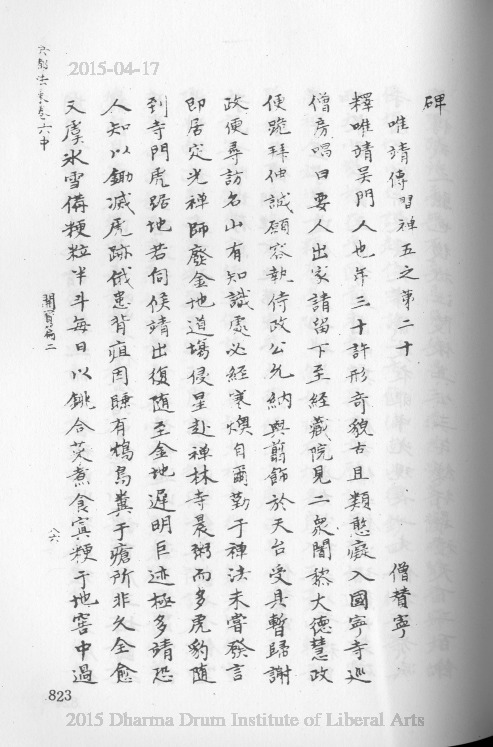 碑
唯靖傳習禅五之第二十　僧賛寧
釋唯靖吴門人也年三十許形奇貌古且類憨癡入國寧寺巡
僧房唱曰要人出家請留下至經藏院見二衆闍黎大德慧政
便跪拜伸誠願容執侍政公允納與翦飾於天台受具暫歸謝
政便尋訪名山有知識處必經寒燠自爾勤于禅法未嘗發言
即居定光禅師廢金地道塲侵星赴禅林寺晨粥而多虎豹随
到寺門虎踞地若伺候靖出復随至金地遲明巨迹極多靖恐
人知以鋤滅虎跡俄患背疽因睡有鴆鳥糞于瘡所非久全愈
又虞氷雪備粳粒半斗每日以銚合茭煮食寘粳于地窖中過
六藝法末卷六中
開寳葊二
八六
823
2015-04-17
2015 Dharma Drum Institute of Liberal Arts